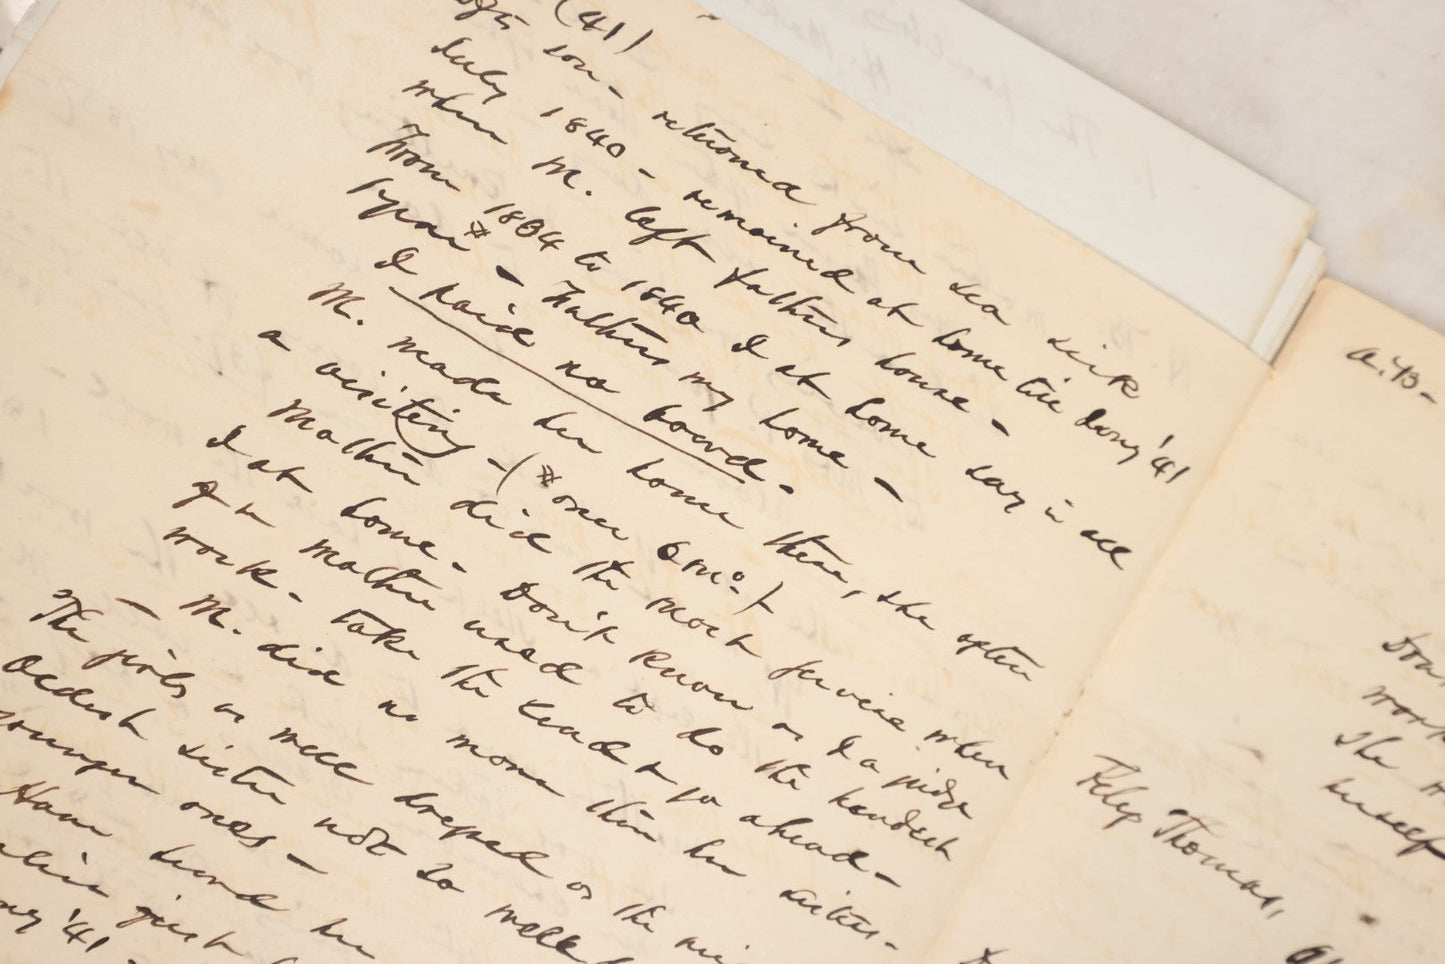 (41)
son - returned from sea sick
July 1840 - remained at home till Jany '41
when M. left fathers house -
From 1834 to 1840 I at home say in all
- Fathers my home -
I paid no board -
M. made her home there, she often
a visiting - (# once 6 mo.)
Mother did the most service when
I at home - Don't know as I a judge
Mother used to do the hardest
work - take the lead & go ahead -
- M. did no more than her sisters -
The girls as well dressed as the
Oldest sister not so well
younger ones -
her
just
'41 -
a. 43 -
work
the
herself
Thomas,